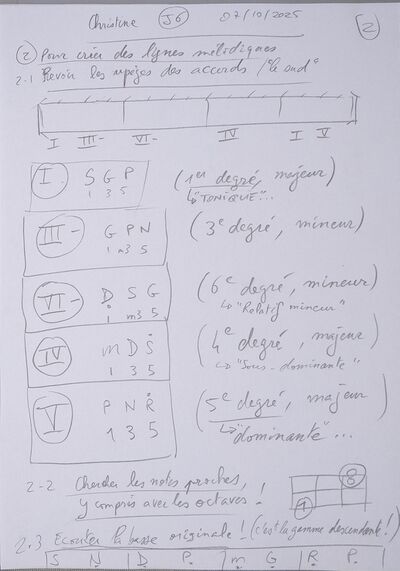 Christine J6 07/10/2025 2
② Pour créer des lignes mélodiques
2.1 Revoir les arpèges des accords / "le sud"
I III- VI- IV I V
I S G P (1er degré, majeur)
1 3 5 ↳ "TONIQUE"...
III- G P N (3e degré, mineur)
1 m3 5
VI- Ḍ S G (6e degré, mineur)
1 m3 5 ↳ "Relatif mineur"
IV m D Ṡ (4e degré, majeur)
1 3 5 ↳ "Sous-dominante"
V P N Ṙ (5e degré, majeur)
1 3 5 ↳ "dominante"...
2-2 Chercher les notes proches, 8
y compris avec les octaves! 1
2.3 Ecouter la basse originale! (c'est la gamme descendante!)
S Ṇ Ḍ P̣ ṃ G̣ Ṛ P̣